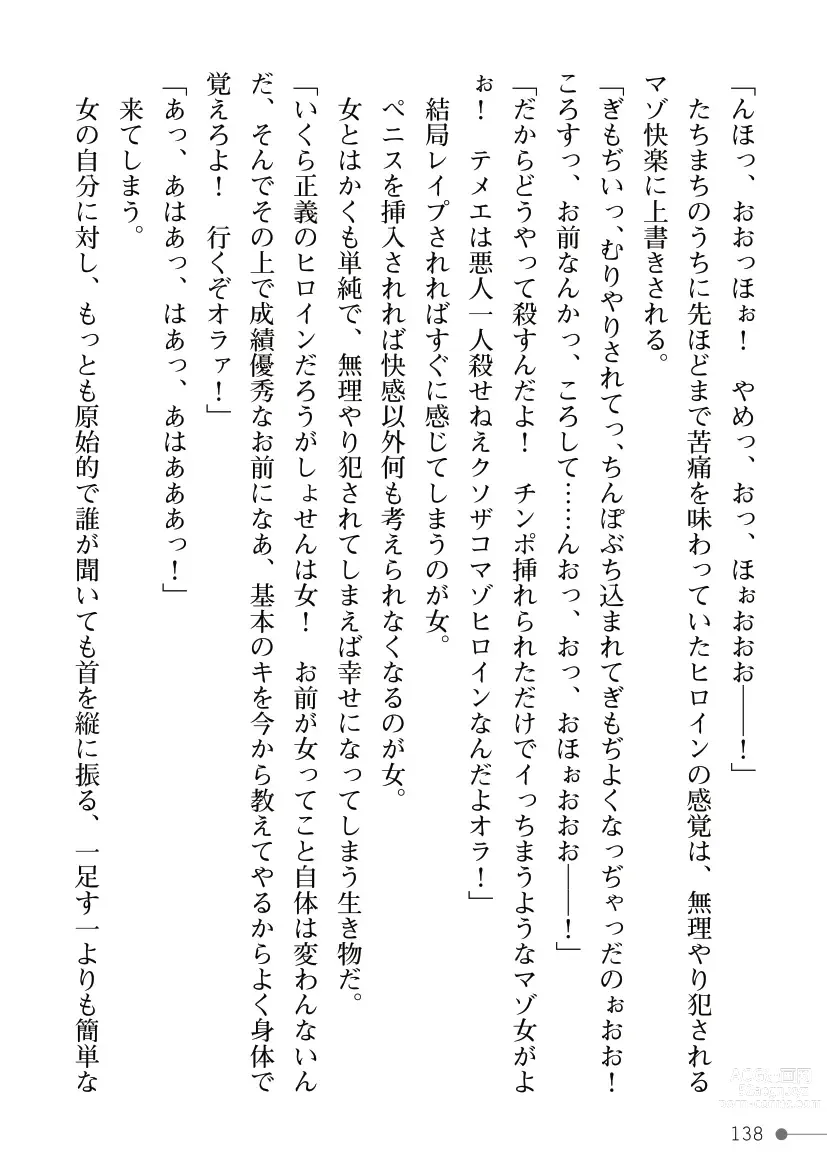 「んほっ、おおっほぉ！　やめっ、おっ、ほぉおおお――！」
たちまちのうちに先ほどまで苦痛を味わっていたヒロインの感覚は、無理やり犯される
マゾ快楽に上書きされる。
「ぎもぢいっ、むりやりされてっ、ちんぽぶち込まれてぎもぢよくなっぢゃっだのぉおお！
ころすっ、お前なんかっ、ころして……んおっ、おっ、おほぉおおお――！」
「だからどうやって殺すんだよ！　チンポ挿れられただけでイっちまうようなマゾ女がよ
ぉ！　テメエは悪人一人殺せねえクソザコマゾヒロインなんだよオラ！」
結局レイプされればすぐに感じてしまうのが女。
ペニスを挿入されれば快感以外何も考えられなくなるのが女。
女とはかくも単純で、無理やり犯されてしまえば幸せになってしまう生き物だ。
「いくら正義のヒロインだろうがしょせんは女！　お前が女ってこと自体は変わんないん
だ、そんでその上で成績優秀なお前になあ、基本のキを今から教えてやるからよく身体で
覚えろよ！　行くぞオラァ！」
「あっ、あはあっ、はあっ、あはあああっ！」
来てしまう。
女の自分に対し、もっとも原始的で誰が聞いても首を縦に振る、一足す一よりも簡単な
138